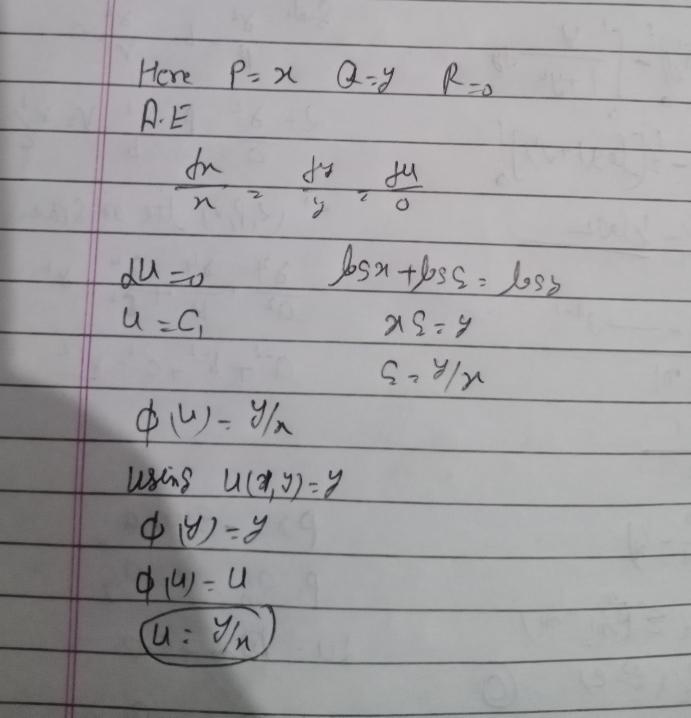 Here P=x Q=y R=0
A.E
dx/x = dy/y = du/0
du=0 logx+logc = logy
u=C₁ y=cx
c=y/x
ϕ(u)=y/x
using u(1,y)=y
ϕ(y)=y
ϕ(u)=u
u=y/x